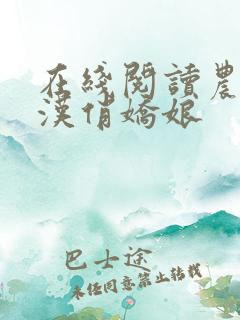 在綫閱讀農
漢俏嬌娘
巴士途
未经同意禁止转载